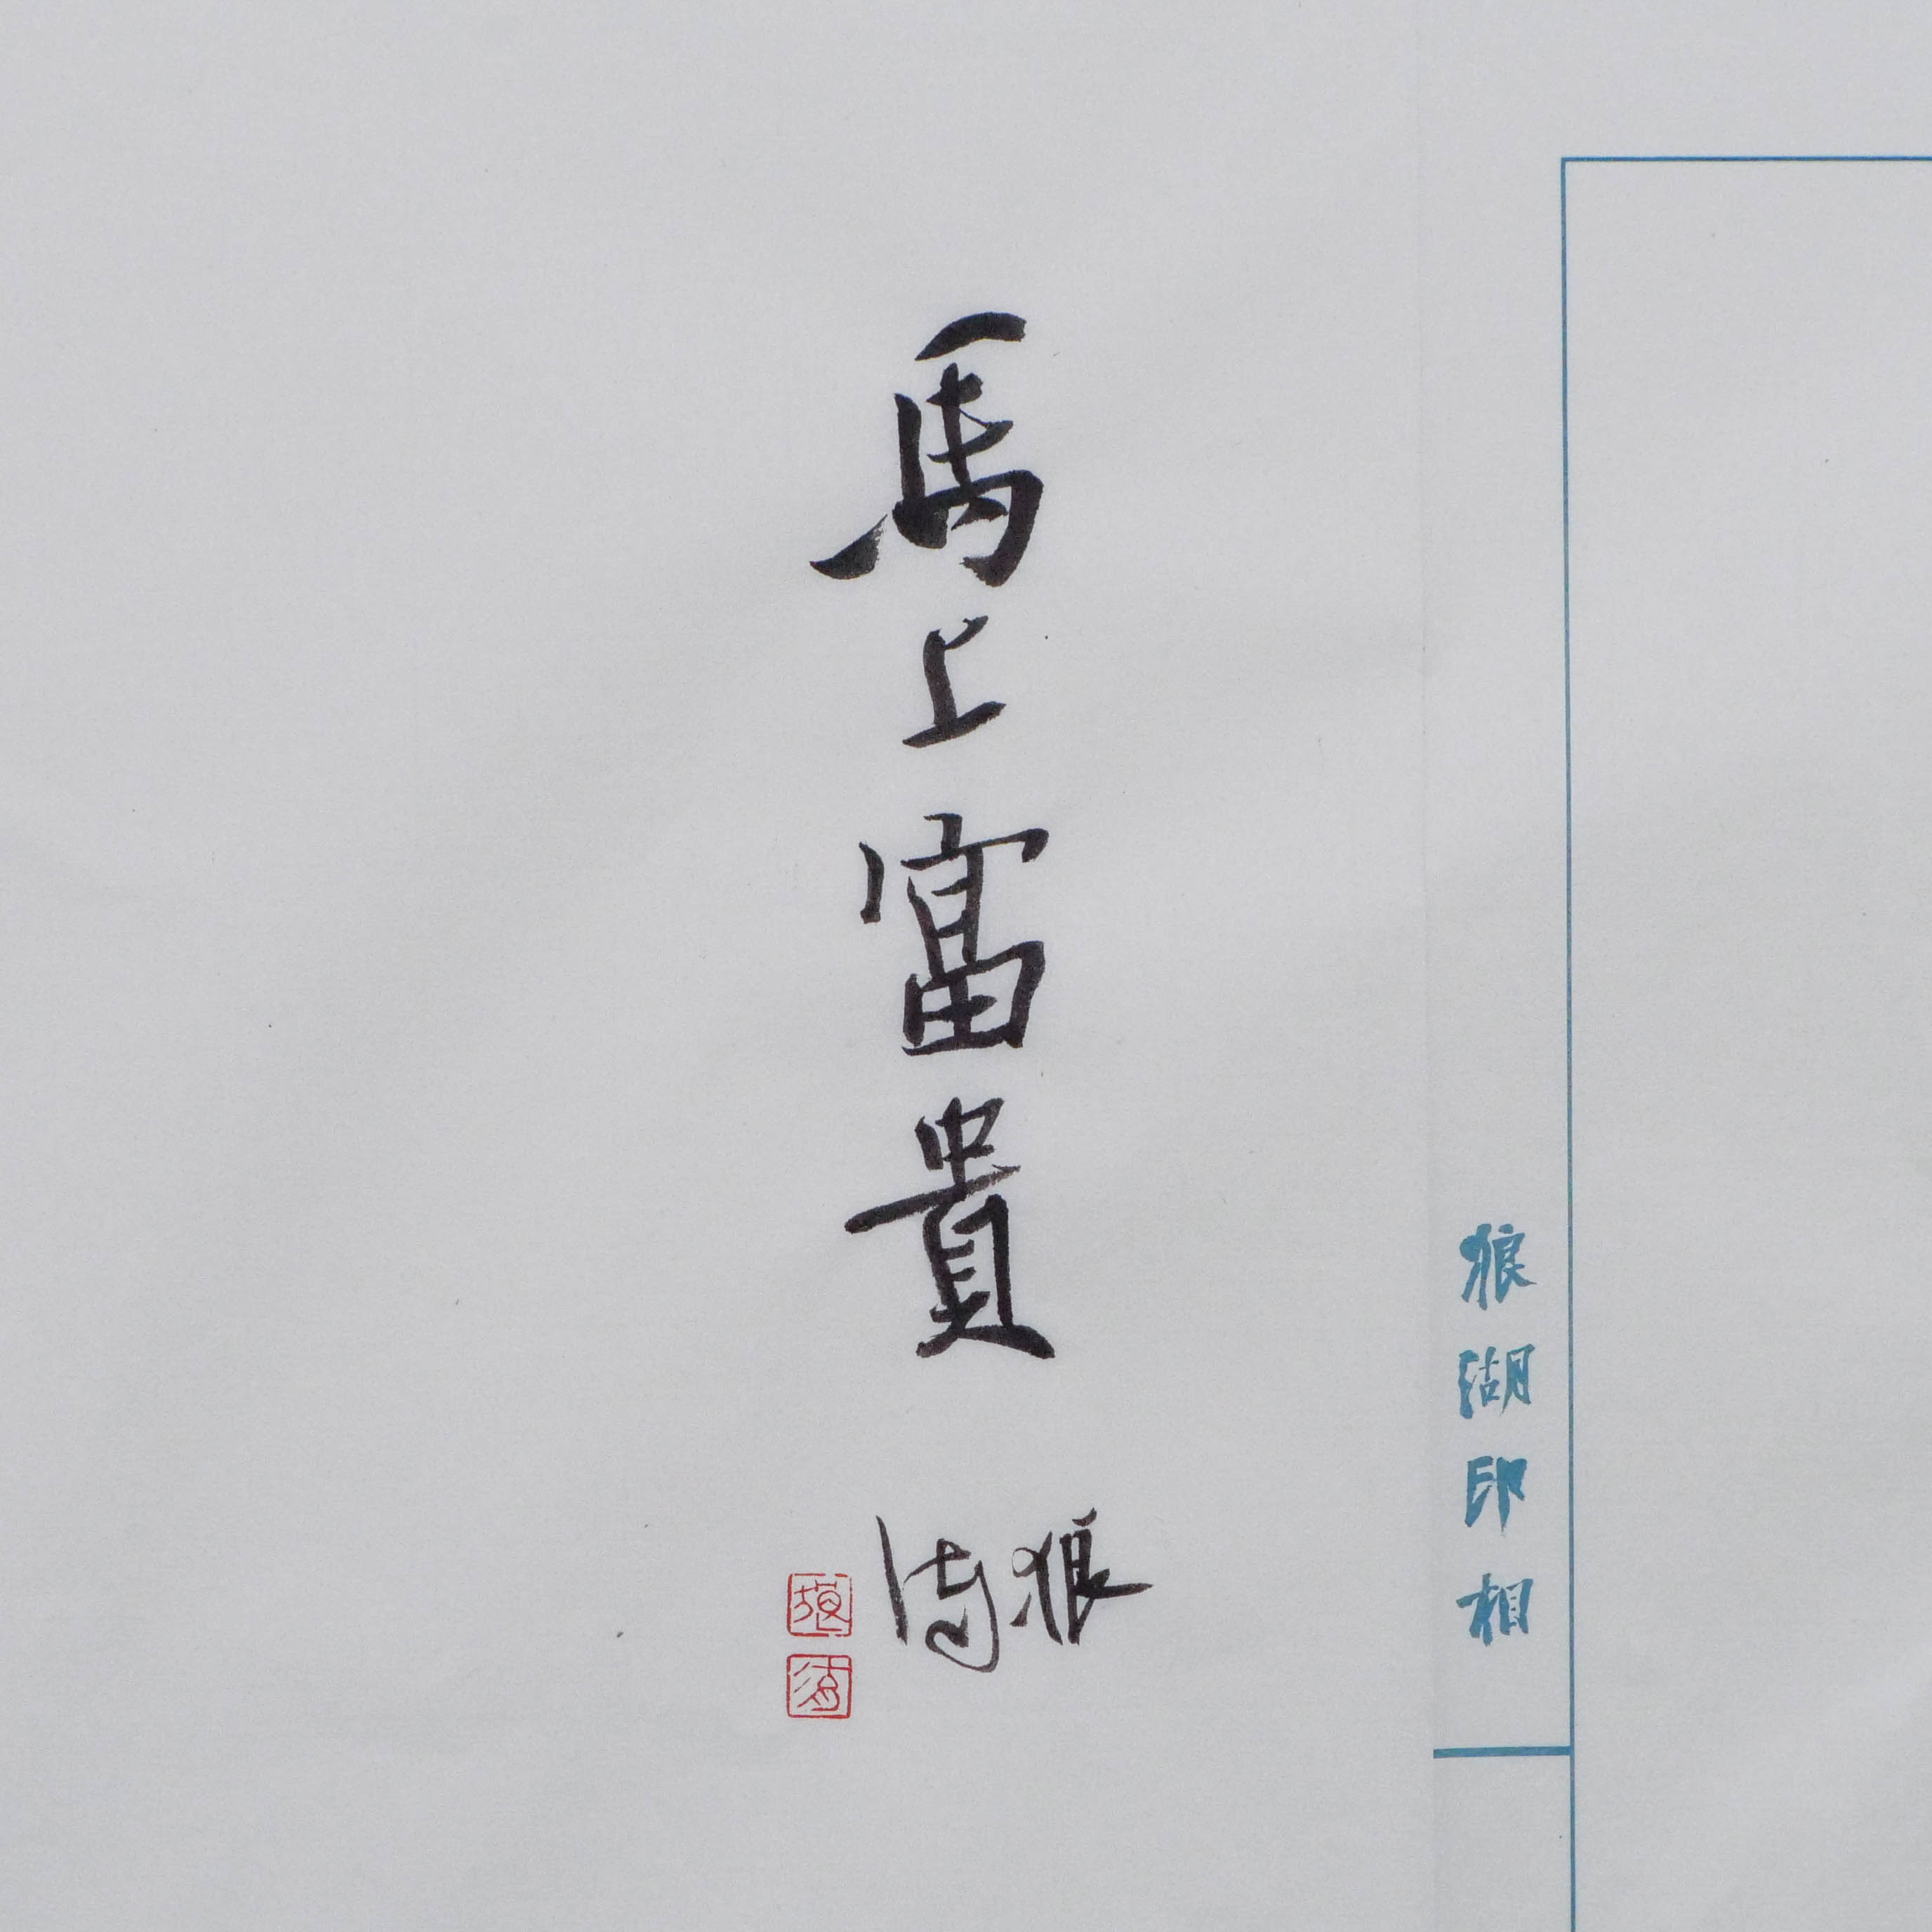 狼湖印相
馬上富貴
狼